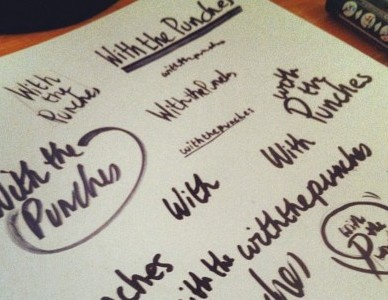 With the Punches
with the punches
With
the
Punches
With the Punches
with
D the
Punches
with the punches
With the
Punches
With
With
with the punches
with the
unches
unches
with
D the